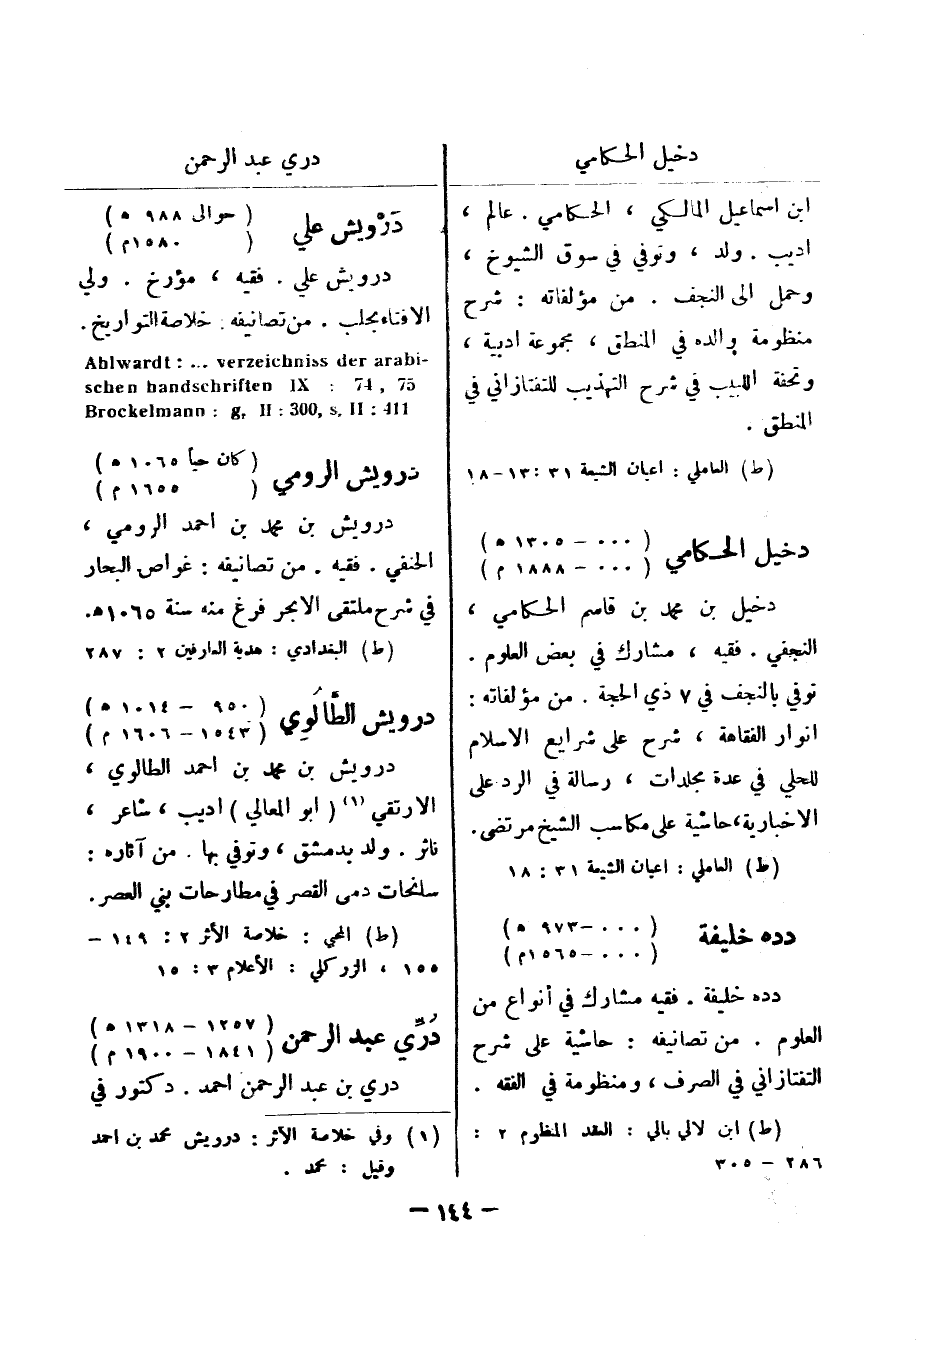 دخيل الحكامي
ابن اسماعيل المالكي ، الحكامي . عالم ،
اديب . ولد ، وتوفي في سوق الشيوخ ،
وحمل الى النجف . من مؤلفاته : شرح
منظومة والده في المنطق ، مجموعة ادبية ،
وتحفة اللبيب في شرح التهذيب للتفتازاني في
المنطق .
(ط) العاملي : اعيان الشيعة ٣١ :١٣-١٨
دخيل الحكامي
( ٠٠٠ - ١٣٠٥ ه )
( ٠٠٠ - ١٨٨٨ م )
دخيل بن محمد بن قاسم الحكامي ،
النجفي . فقيه ، مشارك في بعض العلوم .
توفي بالنجف في ٧ ذي الحجة . من مؤلفاته :
انوار الفقاهة ، شرح على شرايع الاسلام
للحلي في عدة مجلدات ، رسالة في الرد على
الاخبارية،حاشية على مكاسب الشيخ مرتضى.
(ط) العاملي : اعيان الشيعة ٣١ : ١٨
دده خليفة
( ٠٠٠ -٩٧٣ ه )
( ٠٠٠ -١٥٦٥م )
دده خليفة . فقيه مشارك في أنواع من
العلوم . من تصانيفه : حاشية على شرح
التفتازاني في الصرف ، ومنظومة في الفقه .
(ط) ابن لالي بالي : العقد المنظوم ٢ :
٢٨٦ - ٣٠٥
دري عبد الرحمن
دَرْويش علي
( حوالى ٩٨٨ ه )
( ١٥٨٠م )
درويش علي . فقيه ، مؤرخ . ولي
الافتاء بحلب . من تصانيفه : خلاصة التواريخ .
Ahlwardt : ... verzeichniss der arabi-
schen handschriften IX : 74 , 75
Brockelmann : g, II : 300, s, II : 411
درويش الرومي
( كان حياً ١٠٦٥ ه )
( ١٦٥٥ م )
درويش بن محمد بن احمد الرومي ،
الحنفي . فقيه . من تصانيفه : غواص البحار
في شرح ملتقى الابحر فرغ منه سنة ١٠٦٥ه.
(ط) البغدادي : هدية العارفين ٢ : ٢٨٧
درويش الطَّالُوِي
( ٩٥٠ - ١٠١٤ ه )
( ١٥٤٣ - ١٦٠٦ م )
درويش بن محمد بن احمد الطالوي ،
الارتقي (١) ( ابو المعالي ) اديب ، شاعر ،
ناثر . ولد بدمشق ، وتوفي بها . من آثاره :
سانحات دمى القصر في مطارحات بني العصر .
(ط) المحبي : خلاصة الأثر ٢ : ١٤٩ -
١٥٥ ، الزركلي : الأعلام ٣ : ١٥
دُرِّي عبد الرحمن
( ١٢٥٧ - ١٣١٨ ه )
( ١٨٤١ - ١٩٠٠ م )
دري بن عبد الرحمن احمد . دكتور في
(١) وفي خلاصة الأثر : درويش محمد بن احمد
وقيل : محمد .
- ١٤٤ -